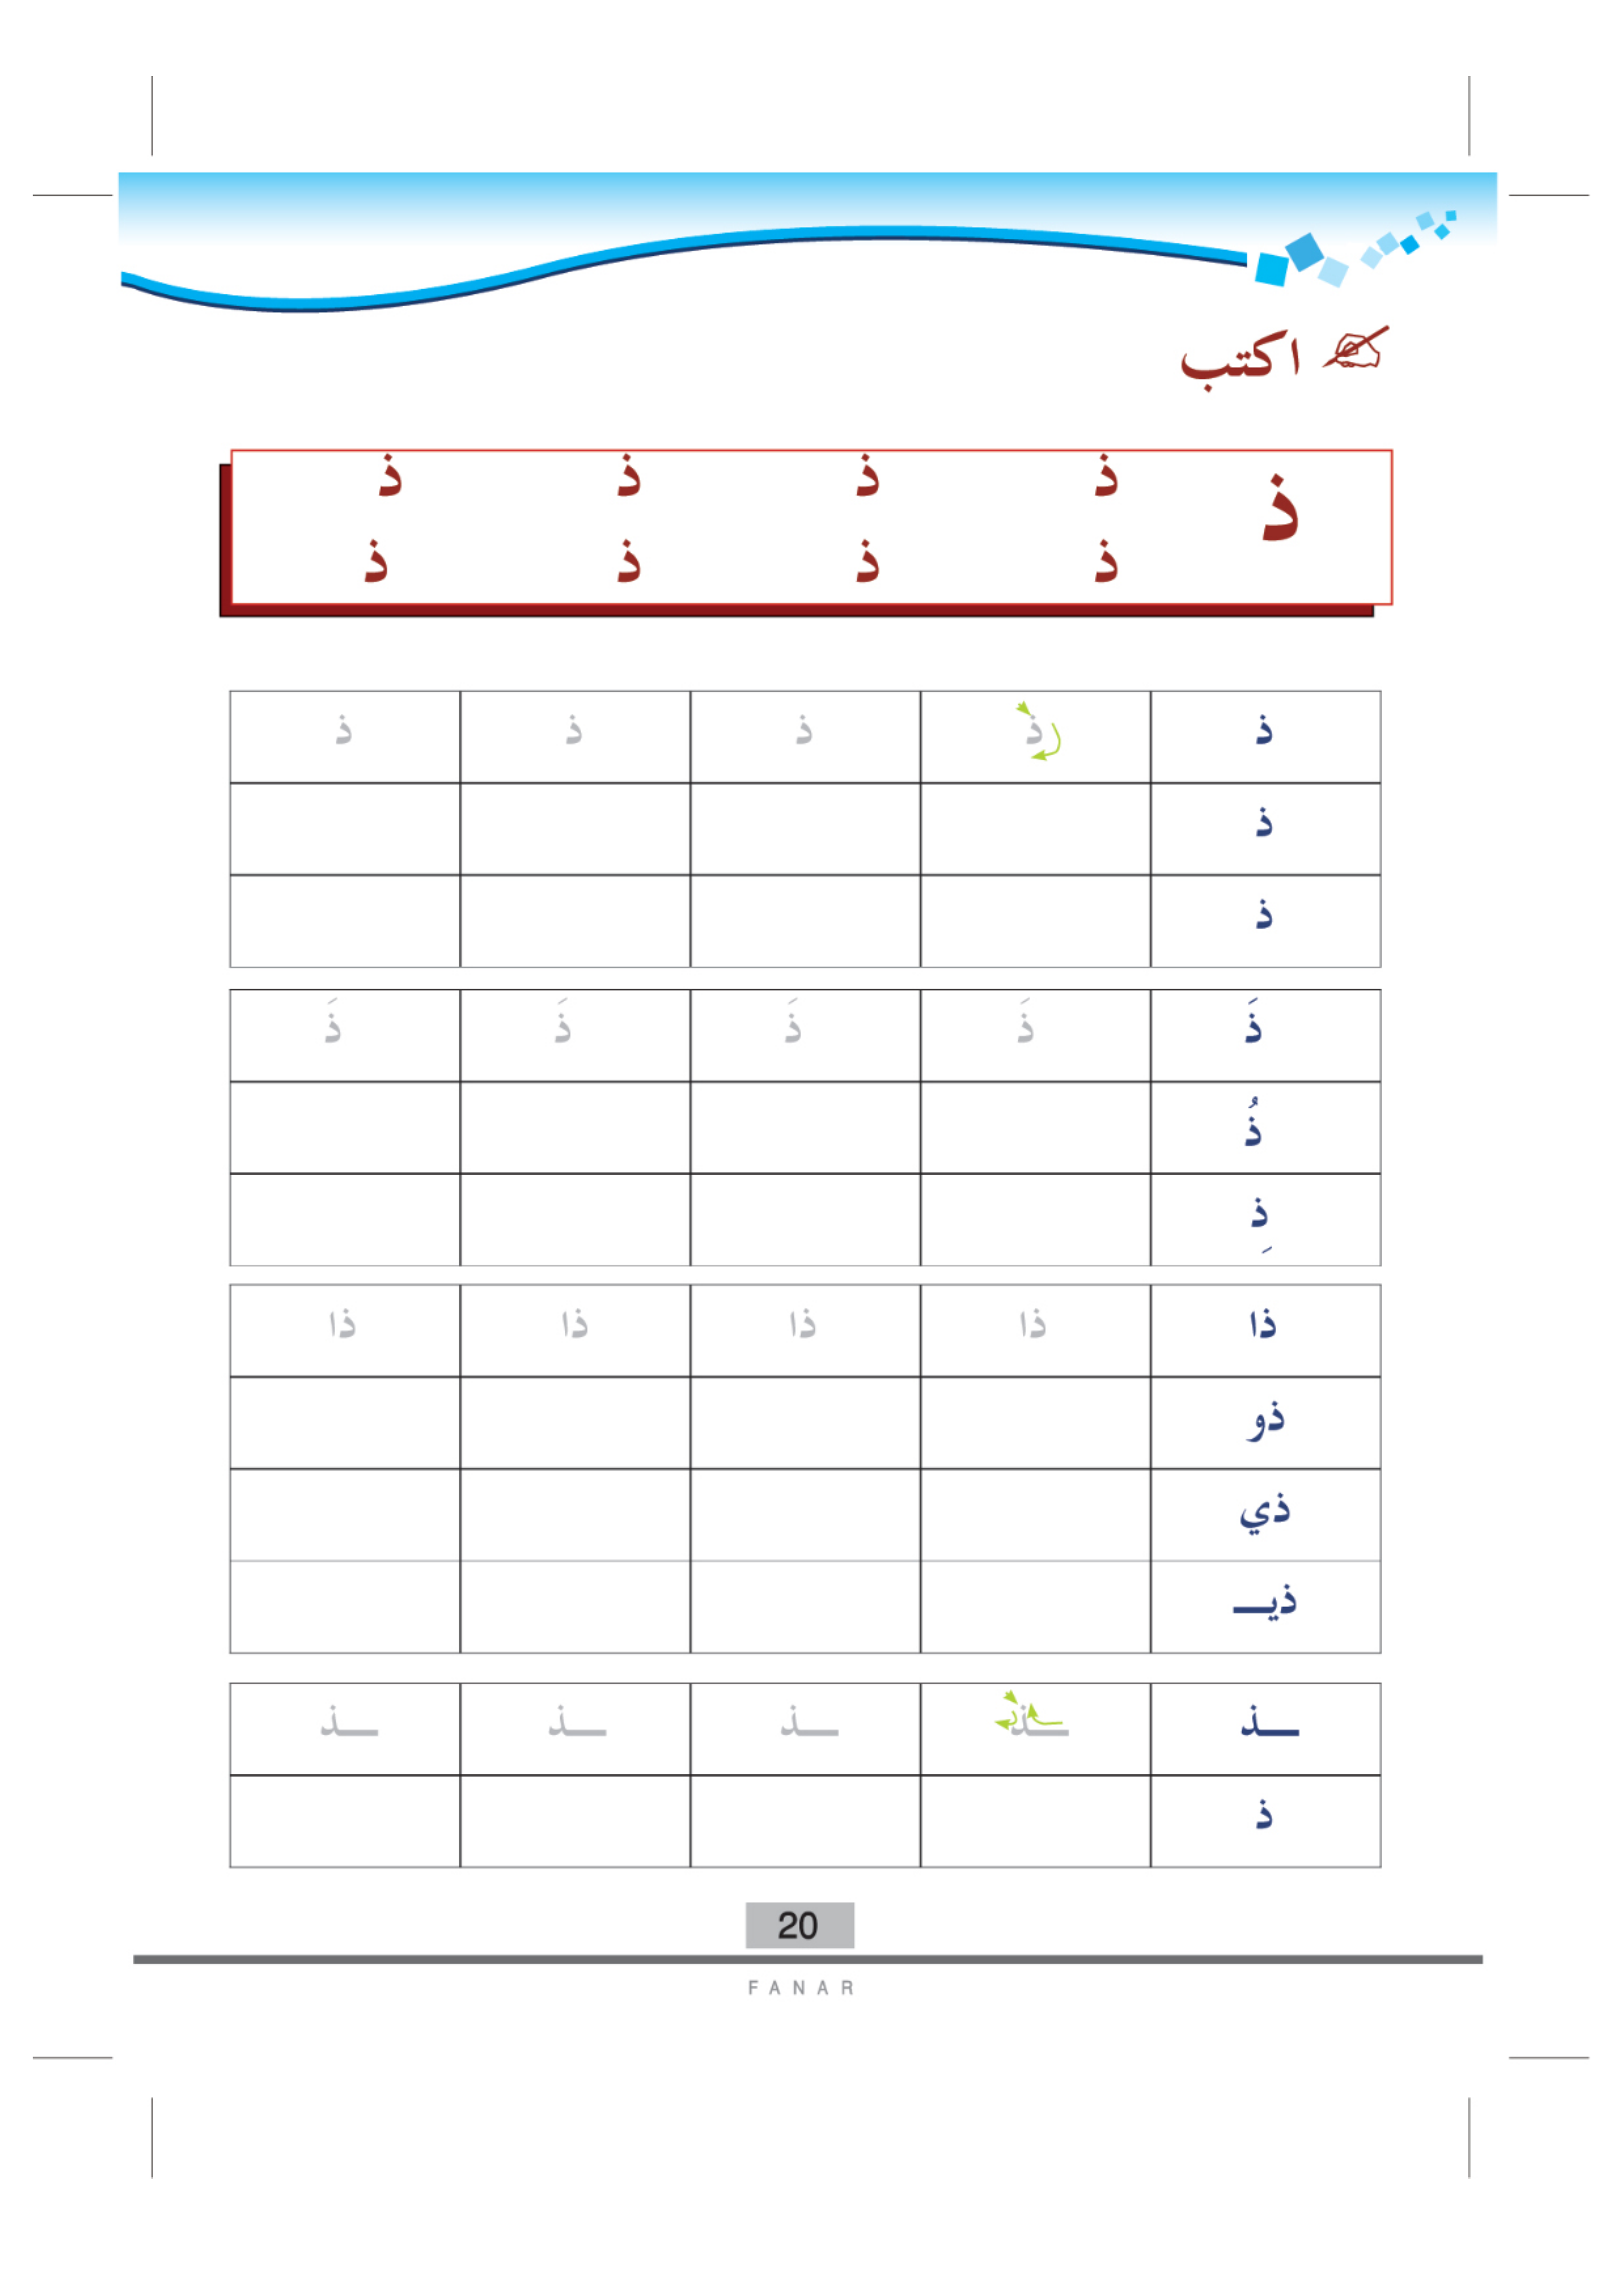 اكتب
ذ ذ ذ ذ ذ
ذ ذ ذ ذ
ذ ذ ذ ذ ذ
ذ
ذ
ذَ ذَ ذَ ذَ ذَ
ذُ
ذِ
ذا ذا ذا ذا ذا
ذو
ذي
ذيـــ
ـــذ ـــذ ـــذ ـــذ ـــذ
ذ
20
FANAR